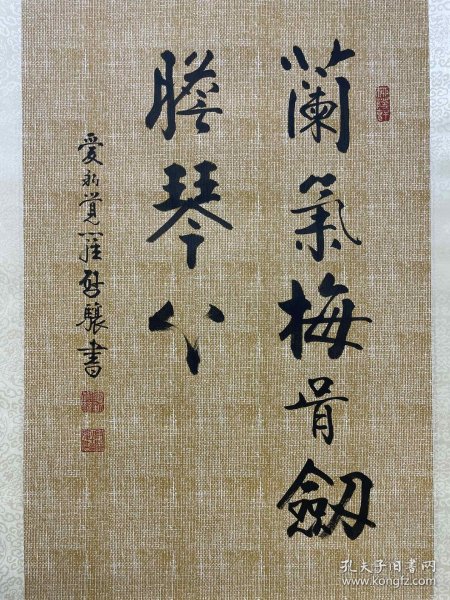 蘭氣梅骨劔
膽琴心
愛新覺羅啟驤書
孔夫子旧书网
www.kongfz.com